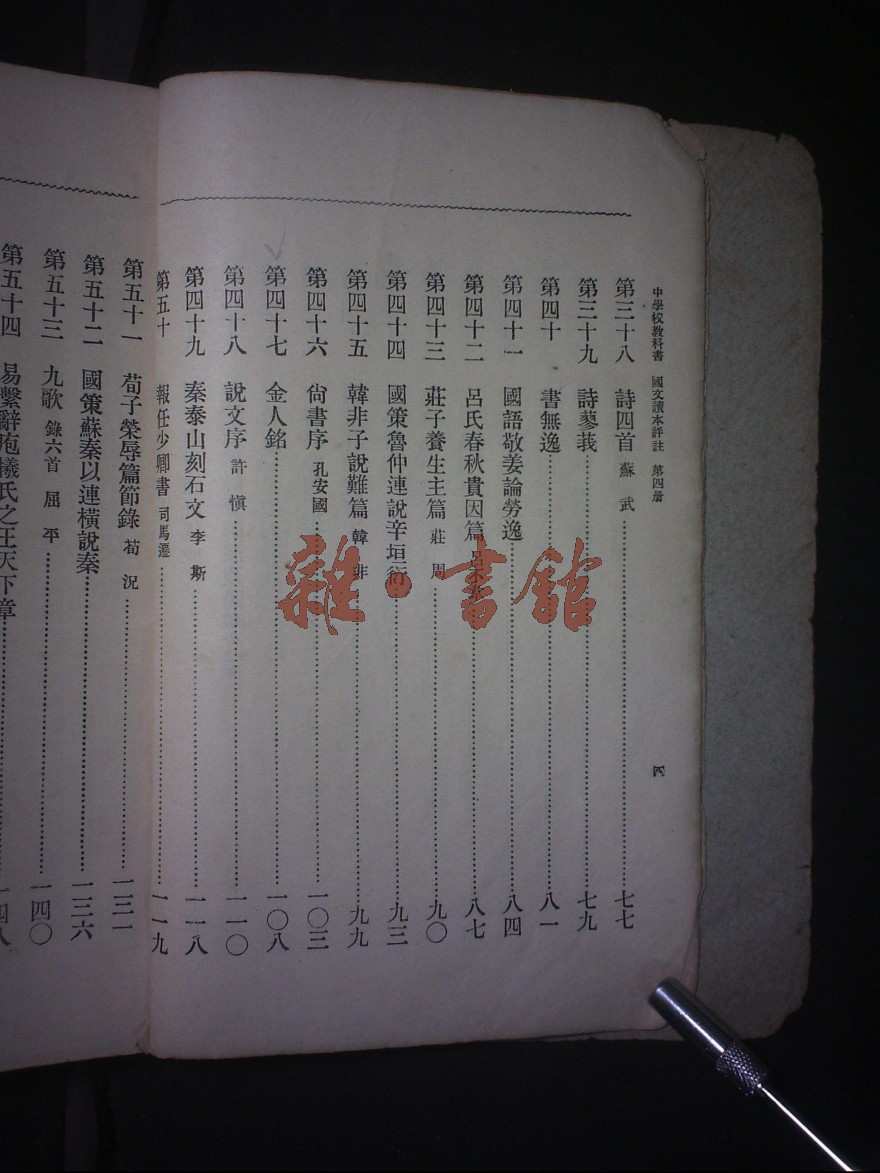 中學校教科書 國文讀本詳註 第四册 四
第三十八 詩四首 蘇武 七七
第三十九 詩蓼莪 七九
第四十 書無逸 八一
第四十一 國語敬姜論勞逸 八四
第四十二 呂氏春秋貴因篇 八七
第四十三 莊子養生主篇 莊周 九〇
第四十四 國策魯仲連說辛垣衍 九三
第四十五 韓非子說難篇 韓非 九九
第四十六 尙書序 孔安國 一〇三
第四十七 金人銘 一〇八
第四十八 說文序 許愼 一一〇
第四十九 秦泰山刻石文 李斯 一一八
第五十 報任少卿書 司馬遷 一一九
第五十一 荀子榮辱篇節錄 荀況 一三一
第五十二 國策蘇秦以連橫說秦 一三六
第五十三 九歌 錄六首 屈平 一四〇
第五十四 易繫辭庖犧氏之王天下章 一四八
雜·書館